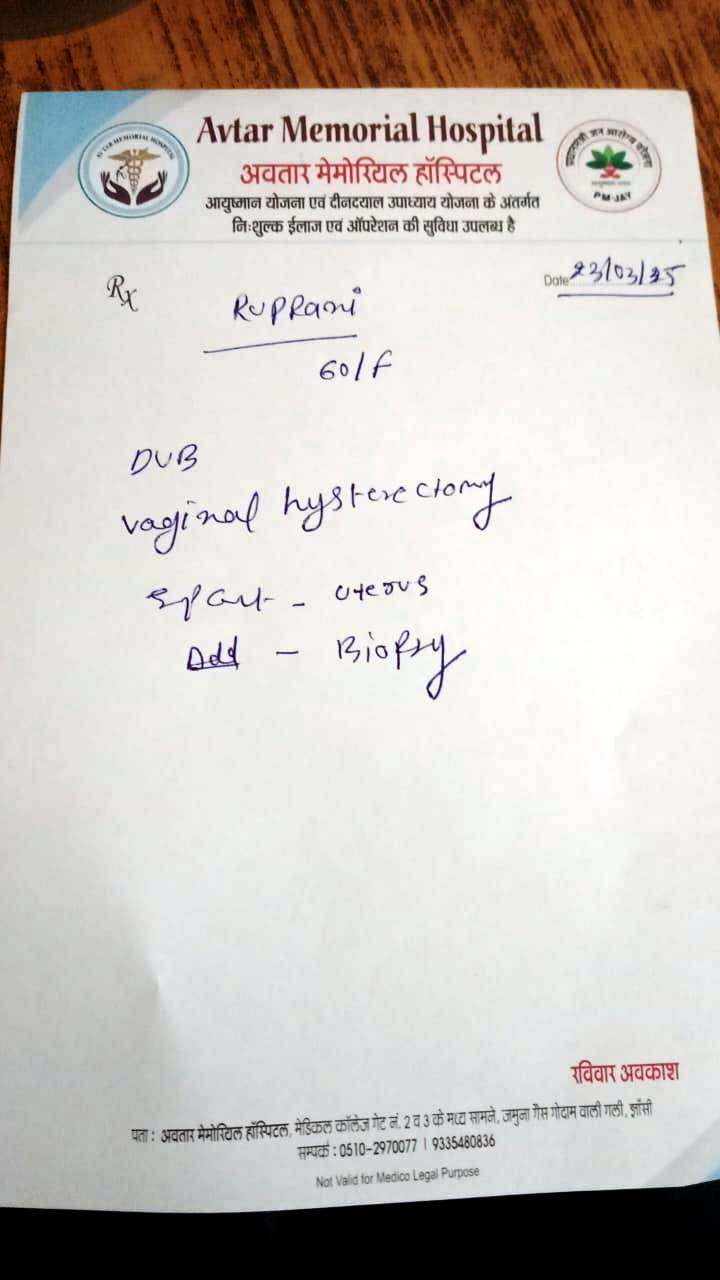 Avtar Memorial Hospital
अवतार मेमोरियल हॉस्पिटल
आयुष्मान योजना एवं दीनदयाल उपाध्याय योजना के अंतर्गत
निःशुल्क ईलाज एवं ऑपरेशन की सुविधा उपलब्ध है
AVTAR MEMORIAL HOSPITAL
प्रधानमंत्री जन आरोग्य योजना
PM-JAY
Rx
Date 23/03/25
RUPRani
60/F
DUB
vaginal hysterectomy
uterus
Add - Biopsy
रविवार अवकाश
पता : अवतार मेमोरियल हॉस्पिटल, मेडिकल कॉलेज गेट नं. 2 व 3 के मध्य सामने, जमुना गैस गोदाम वाली गली, झाँसी
सम्पर्क : 0510-2970077 | 9335480836
Not Valid for Medico Legal Purpose